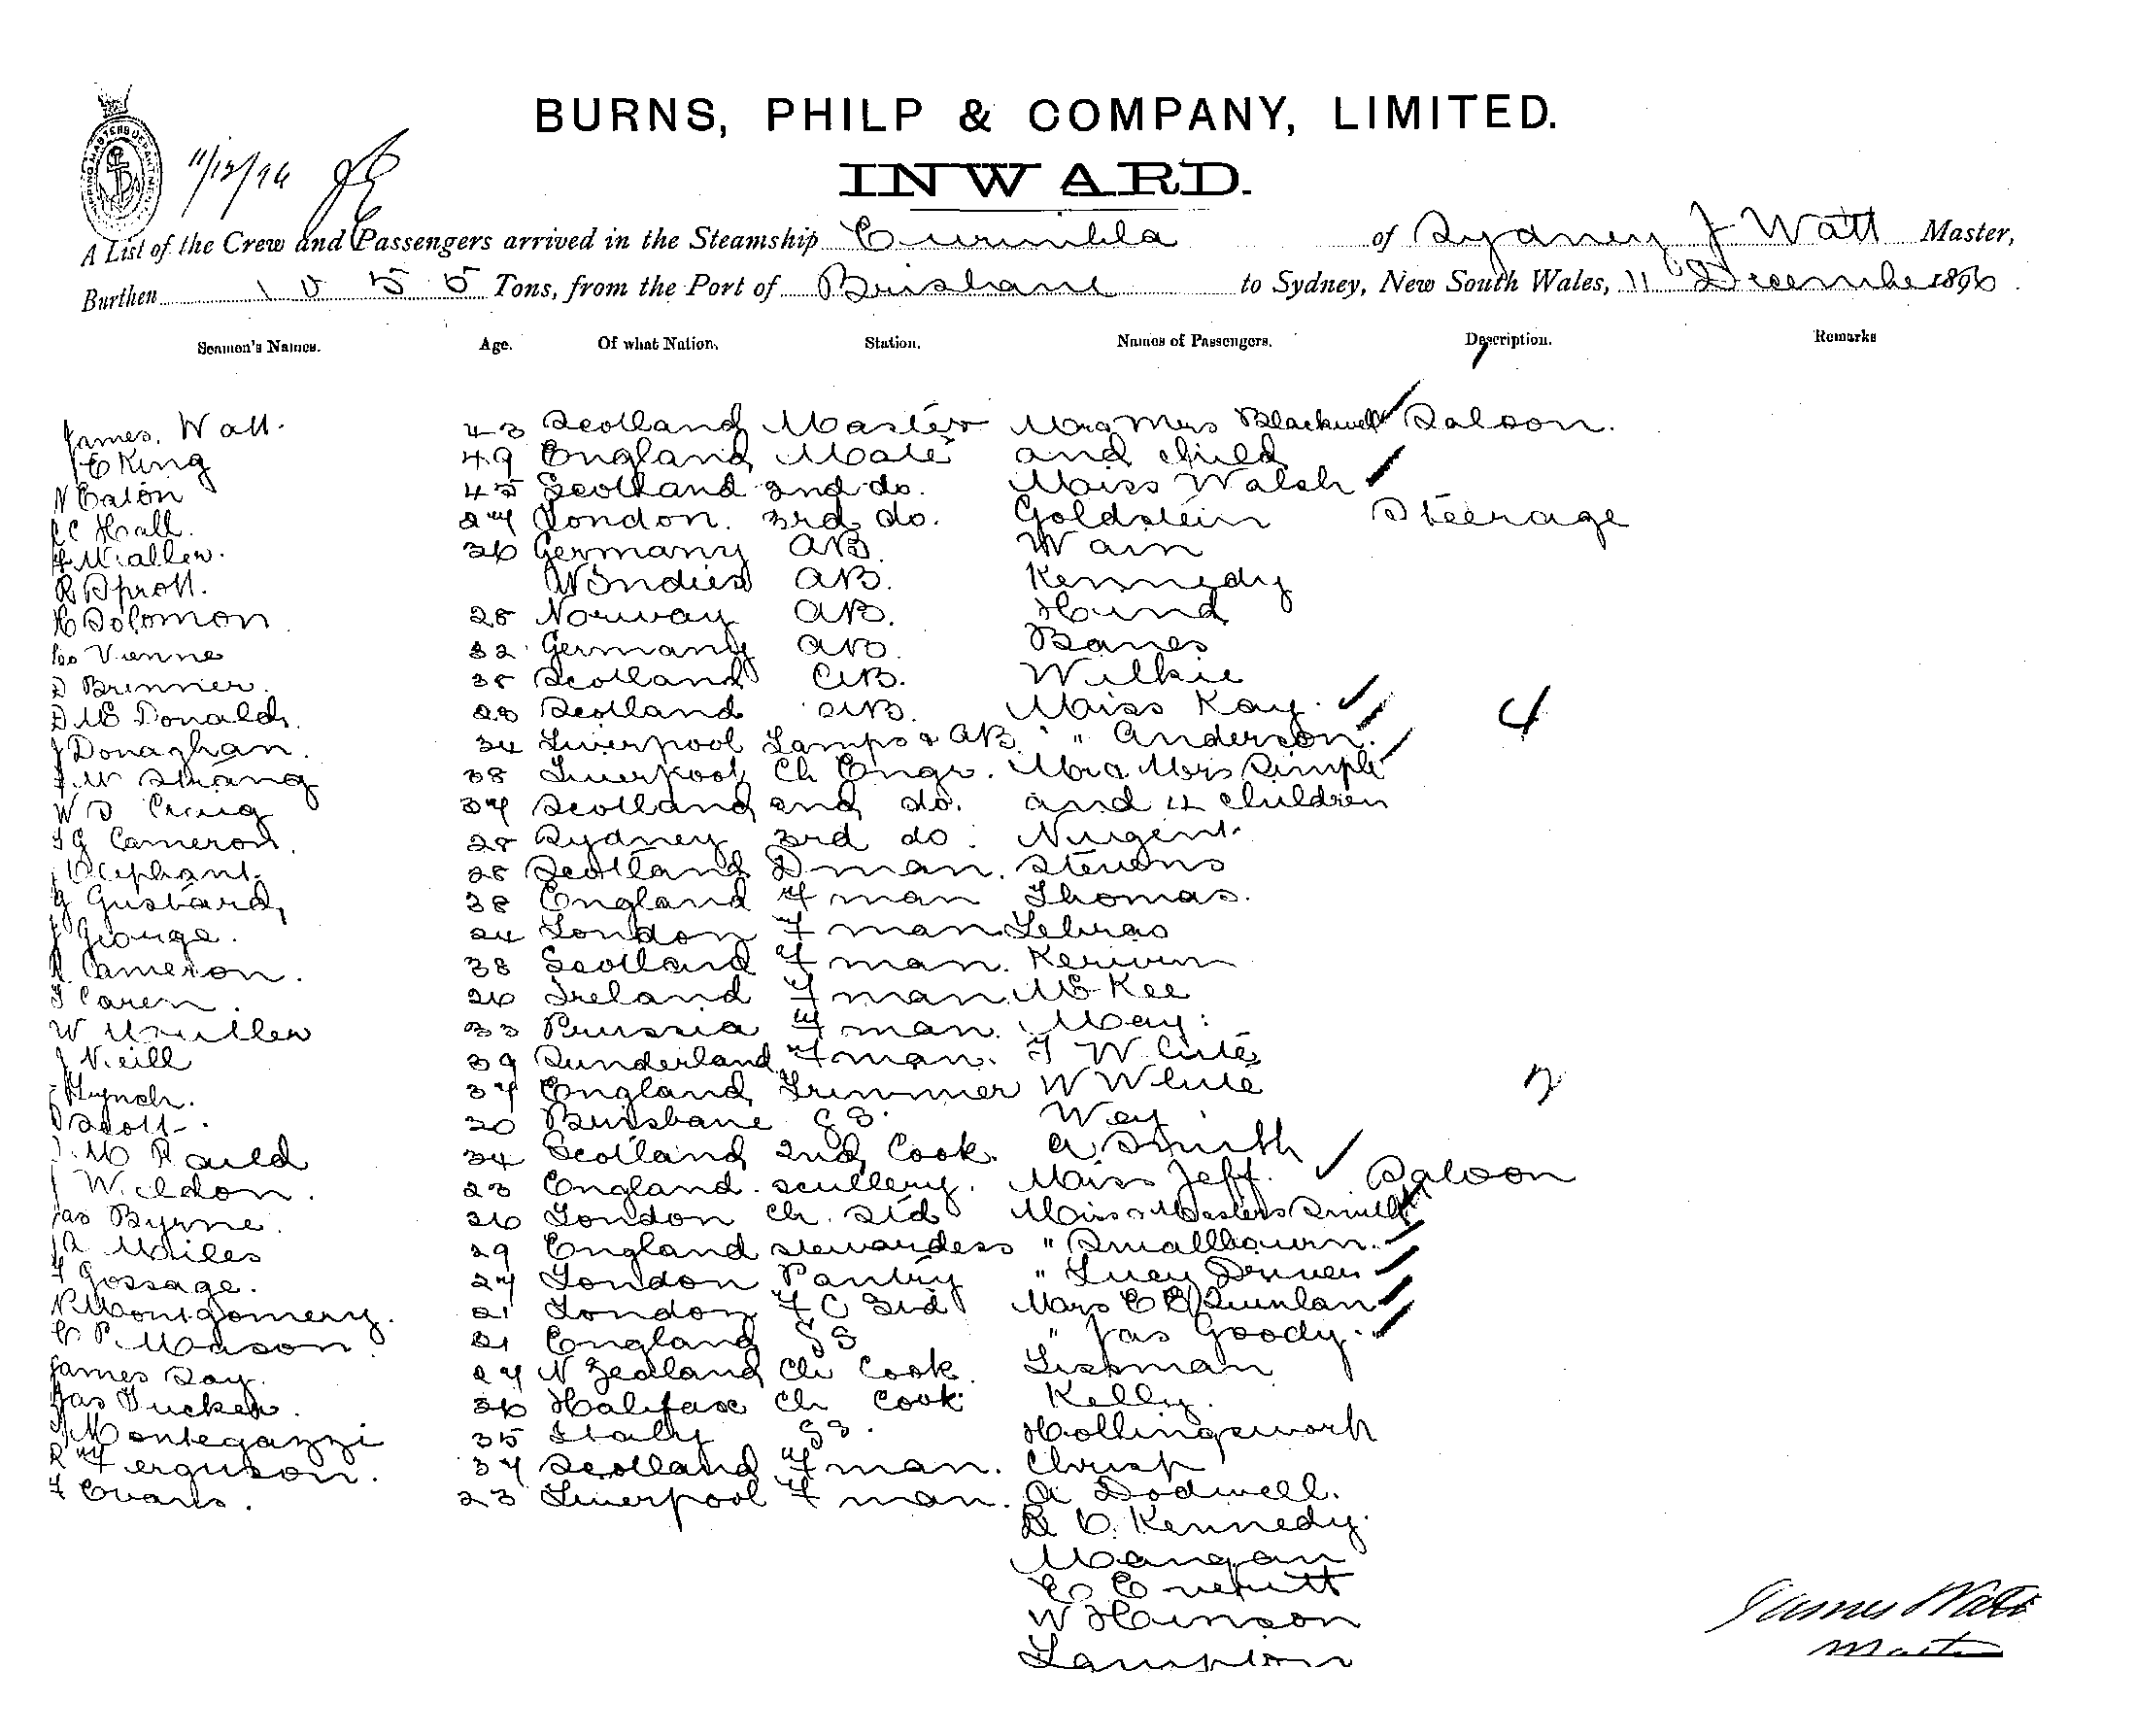 BURNS, PHILP & COMPANY, LIMITED.
INWARD.
11/12/96
A List of the Crew and Passengers arrived in the Steamship of Sydney J Watt Master,
Burthen 1055 Tons, from the Port of Brisbane to Sydney, New South Wales, 11 December 1896
Seamen's Names. Age. Of what Nation. Station. Names of Passengers. Description. Remarks
James. Watt. 43 Scotland Master Mr & Mrs Blackwell Saloon.
E King 49 England Mate and child
N Eaton 45 Scotland 2nd do. Miss Walsh
C Hall. 27 London. 3rd do. Goldstein Steerage
26 Germany AB Wain
R Sprott. W Indies AB. Kennedy
H Solomon 28 Norway AB. Hund
Vienne 32 Germany AB. Banes
D Brenner. 38 Scotland AB. Wilkie
D McDonald. 28 Scotland AB. Miss Kay. 4
J Donaghan. 34 Liverpool Lamps & AB. " Anderson.
J W Strang 38 Liverpool Ch Engr. Mr & Mrs
W S Craig 37 Scotland 2nd do. and 4 children
J G Cameron. 28 Sydney 3rd do. Nugent.
J Oliphant. 28 Scotland Dman. Stevens
G Gustard, 38 England Fman Thomas.
J George. 24 London Fman.
R Cameron. 38 Scotland Fman. Kerwin
J Caren. 26 Ireland Fman. McKee
W Muller 33 Prussia Fman. May.
J Neill 39 Sunderland Fman. J White
J Lynch. 37 England Trimmer W White
Scott. 20 Brisbane GS. Way
J. McRauld 34 Scotland 2nd Cook. A Smith
J Weldon. 23 England. scullery. Miss Jeff. Saloon
Jas Byrne. 26 London Ch. Std Miss & Masters Smith
A Miles 29 England stewardess " Smallbourn.
F Gossage. 27 London Pantry " Lucy
N Montgomery. 21 London F C Std Mrs Quinlan
C P. Mason 21 England GS " Jas Goody.
James Day. 27 N Zealand Ch Cook. Lissman
Jas Tucker. 36 Halifax Ch Cook Kelly.
J Montegazzi 35 Italy GS. Hollingswork
R Ferguson. 37 Scotland Fman. Christ
F Evans. 23 Liverpool Fman. A Dodwell.
R C. Kennedy.
Mangan
E Everitt
W Hinson
Lampton
James Watt
Master